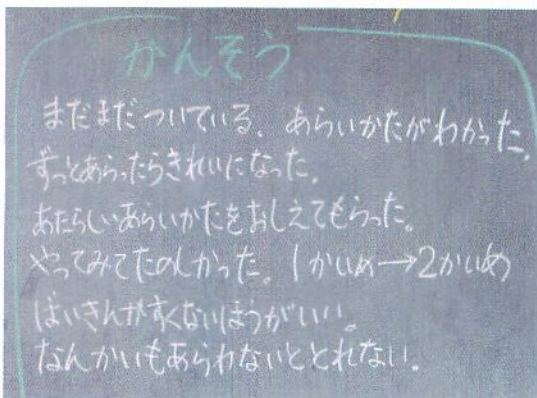 かんそう
まだまだついている。あらいかたがわかった。
ずっとあらったらきれいになった。
あたらしいあらいかたをおしえてもらった。
やってみてたのしかった。1かいめ→2かいめ
ばいきんがすくないほうがいい。
なんかいもあらわないととれない。